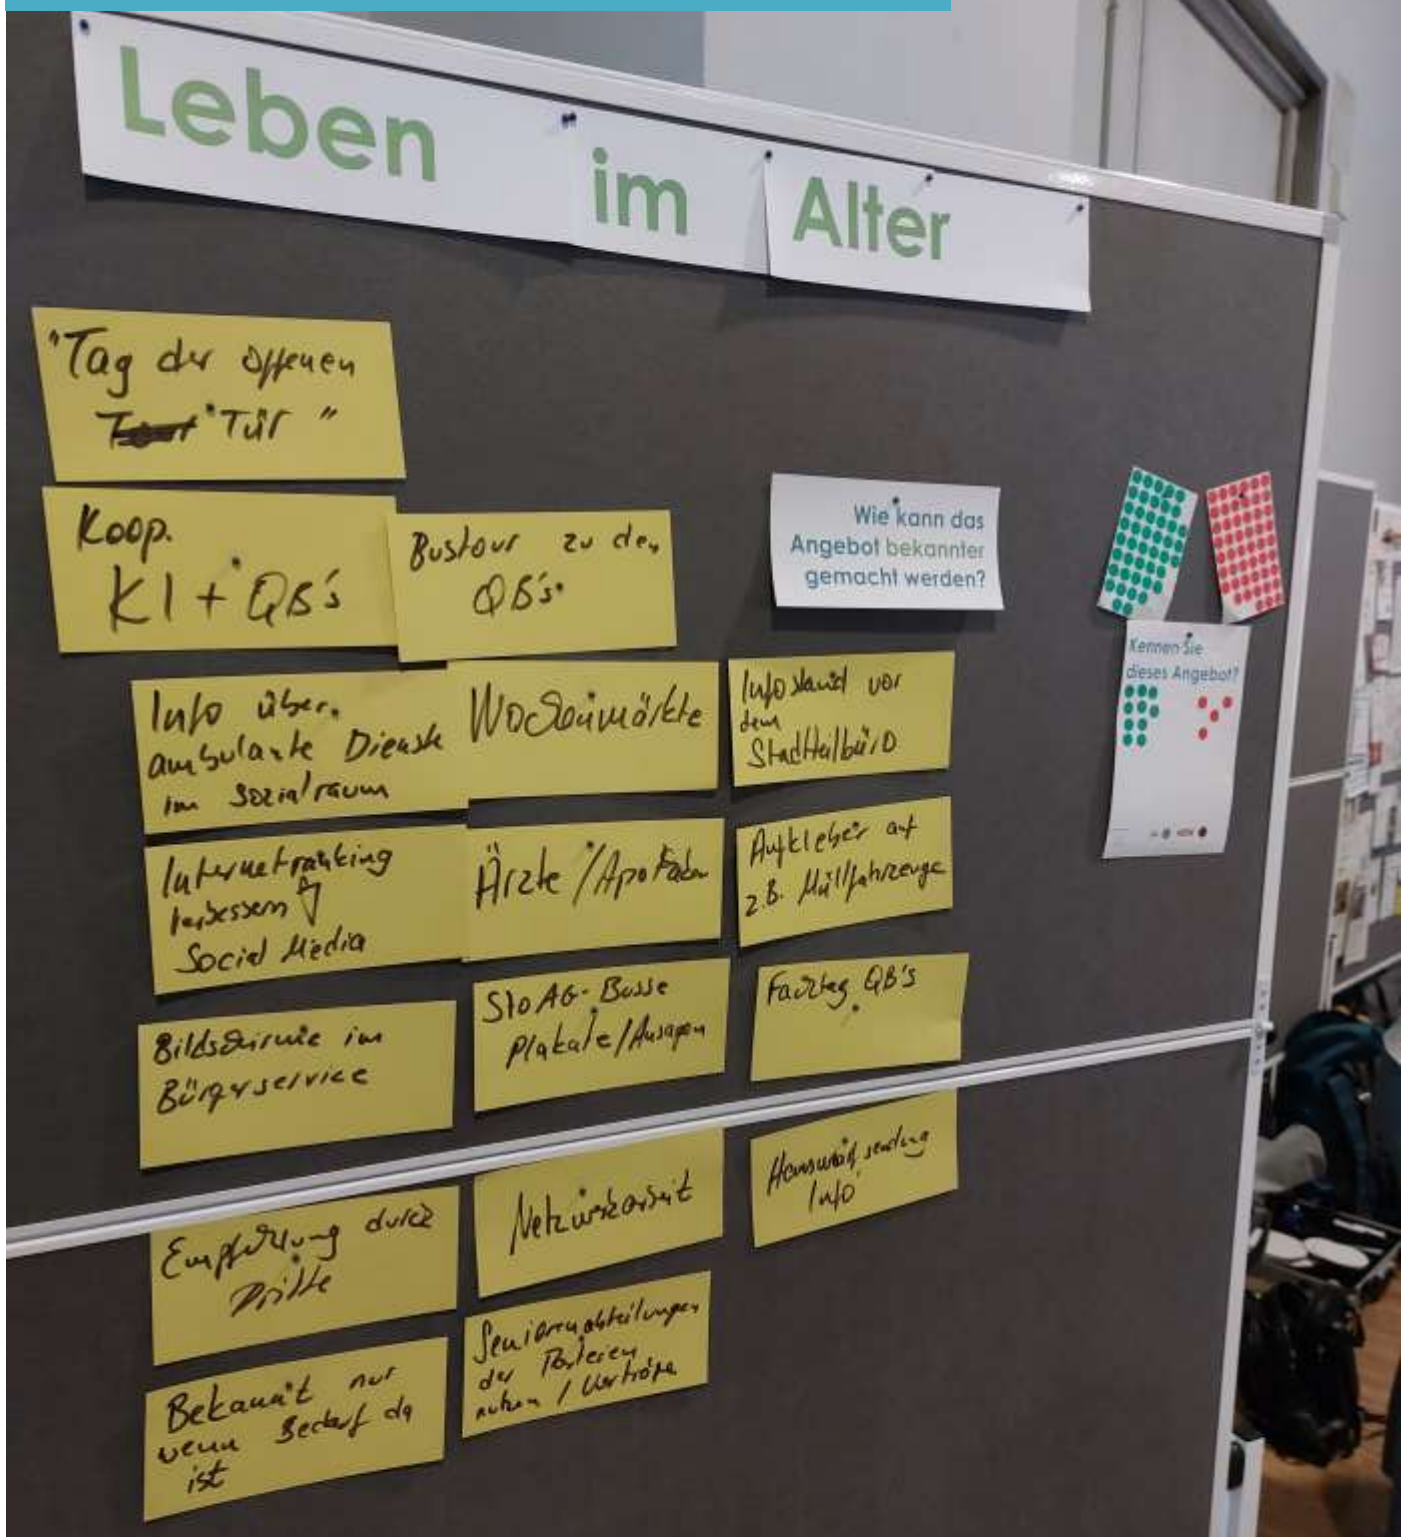 Leben im Alter
"Tag der offenen
Tür"
Koop.
KI + QB's
Bustour zu den
QB's
Wie kann das
Angebot bekannter
gemacht werden?
Kennen Sie
dieses Angebot?
Info über
ambulante Dienste
im Sozialraum
Wochenmärkte
Infostand vor
dem
Stadtteilbüro
Internetranking
verbessern
Social Media
Ärzte / Apotheken
Aufkleber auf
z.B. Müllfahrzeuge
Bildschirme im
Bürgerservice
StoAG-Busse
Plakate/Ansagen
Fachtag QB's
Empfehlung durch
Dritte
Netzwerkarbeit
Info
Bekannt nur
wenn Bedarf da
ist
Seniorenabteilungen
der Parteien
nutzen / Vorträge